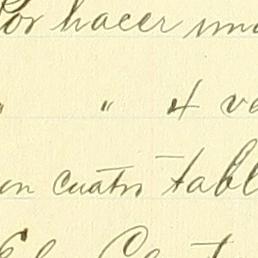 Por hacer una
" " 4 ve
en cuatro tabl